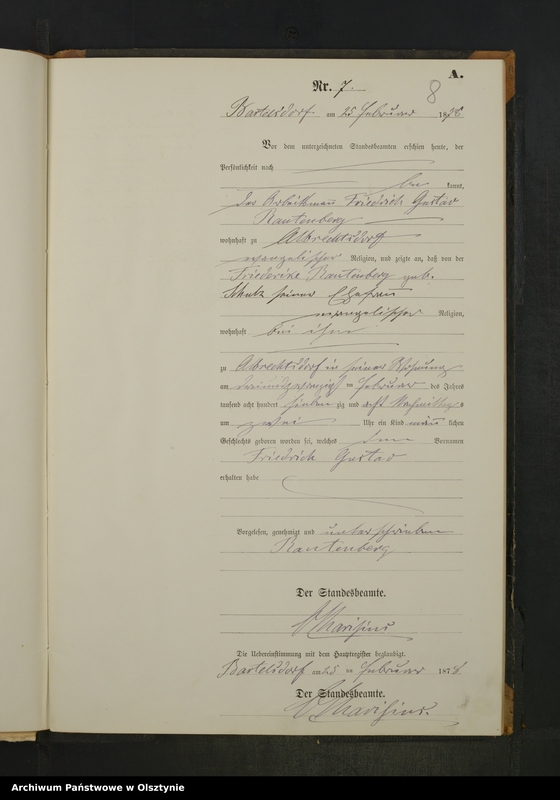 A.
8
Nr. 7.
Bartelsdorf am 25 Februar 1878
Vor dem unterzeichneten Standesbeamten erschien heute, der
Persönlichkeit nach
be kannt,
der Arbeitmann Friedrich Gustav
Rautenberg
wohnhaft zu Albrechtsdorf
evangelischer Religion, und zeigte an, daß von der
Friederike Rautenberg geb.
Schulz seiner Ehefrau
evangelischer Religion,
wohnhaft bei ihm
zu Albrechtsdorf in seiner Wohnung
am zwanzig ten Februar des Jahres
tausend acht hundert sieben zig und acht Nachmittags
um zwei Uhr ein Kind männ lichen
Geschlechts geboren worden sei, welches den Vornamen
Friedrich Gustav
erhalten habe
Vorgelesen, genehmigt und unterschrieben
Rautenberg
Der Standesbeamte.
Die Uebereinstimmung mit dem Hauptregister beglaubigt.
Bartelsdorf am 25 ten Februar 1878.
Der Standesbeamte.
Archiwum Państwowe w Olsztynie